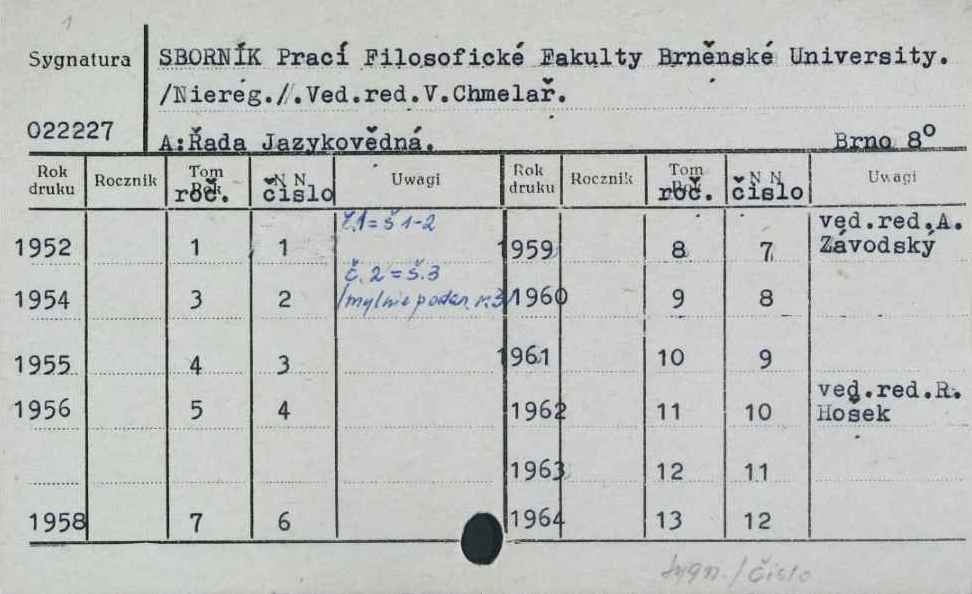 1
Sygnatura
SBORNÍK Prací Filosofické Fakulty Brněnské University.
/Niereg./.Ved.red.V.Chmelař.
022227
A:Řada Jazykovědná. Brno 8º
Rok druku Rocznik Tom Rok roč. N N číslo Uwagi Rok druku Rocznik Tom Rok roč. N N číslo Uwagi
č.1 = š 1-2
1952 1 1 1959 8 7 ved.red.A. Závodský
č. 2 = š. 3
1954 3 2 /mylnie podan. r.3/ 1960 9 8
1955 4 3 1961 10 9
1956 5 4 1962 11 10 ved.red.R. Hošek
1963 12 11
1958 7 6 1964 13 12
sygn./číslo